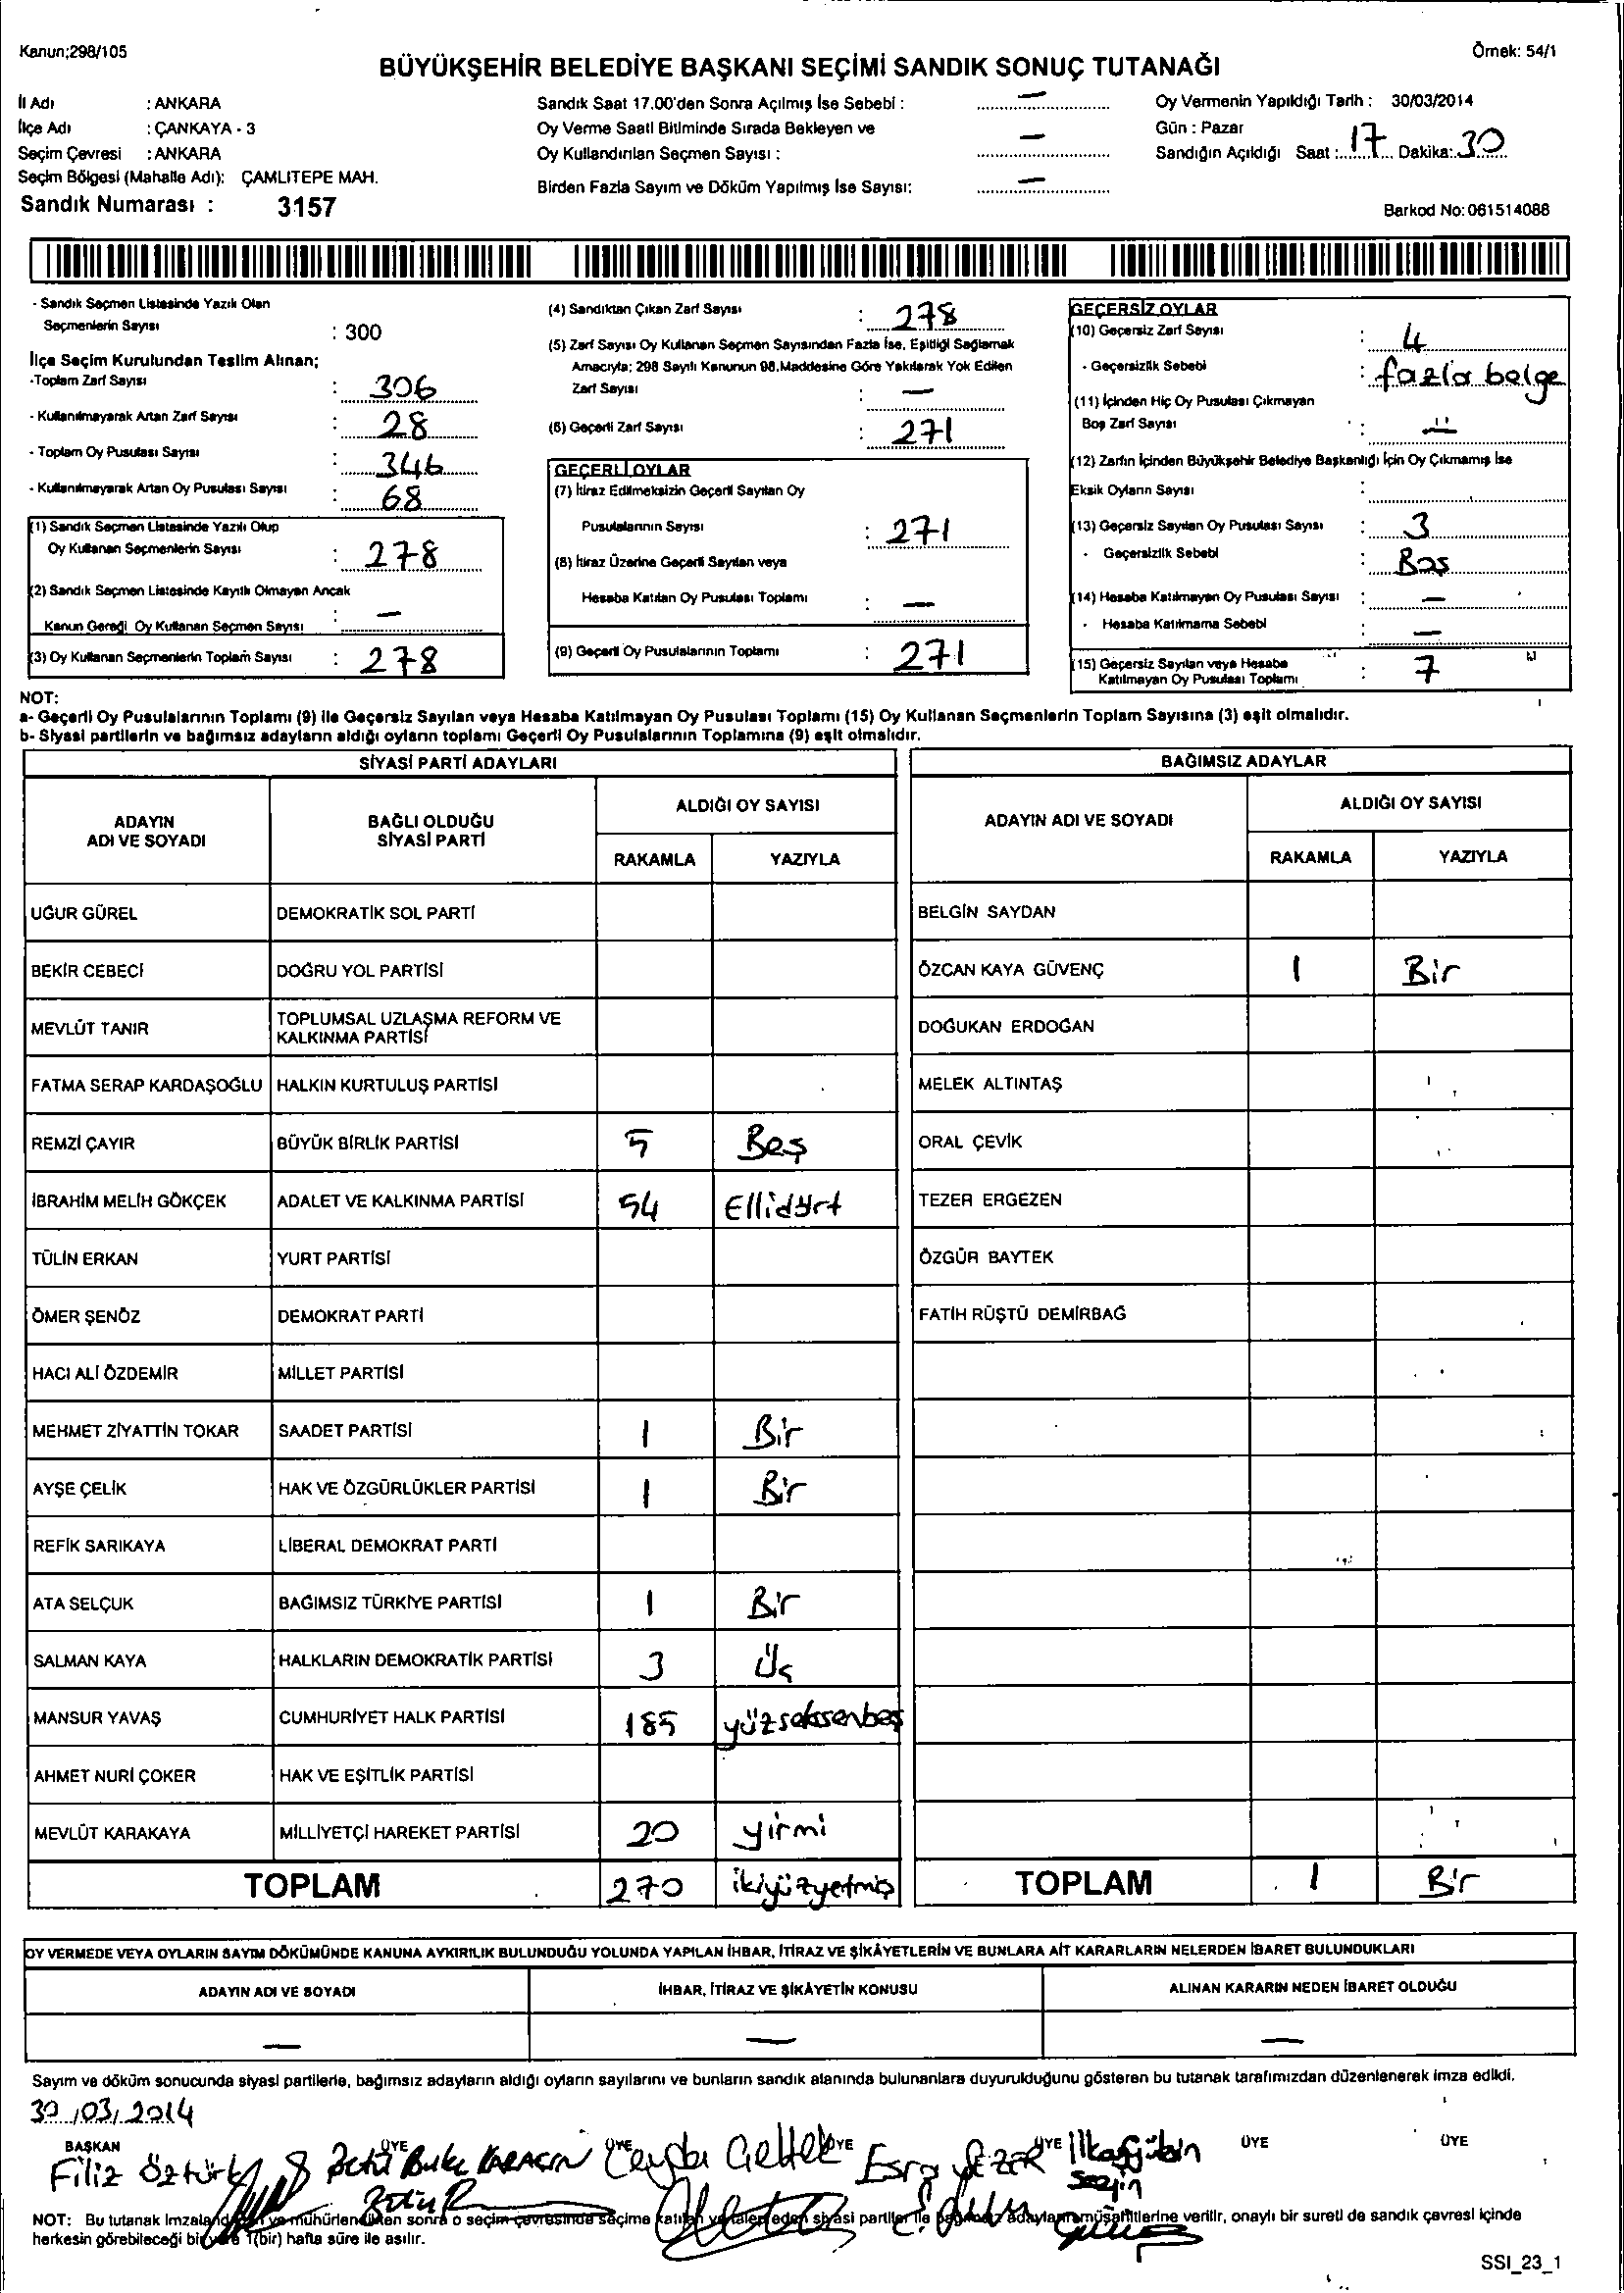 Kanun;298/105
Örnek: 54/1
BÜYÜKŞEHİR BELEDİYE BAŞKANI SEÇİMİ SANDIK SONUÇ TUTANAĞI
İl Adı : ANKARA
İlçe Adı : ÇANKAYA - 3
Seçim Çevresi : ANKARA
Seçim Bölgesi (Mahalle Adı): ÇAMLITEPE MAH.
Sandık Numarası : 3157
Sandık Saat 17.00'den Sonra Açılmış İse Sebebi : —
Oy Verme Saati Bitiminde Sırada Bekleyen ve
Oy Kullandırılan Seçmen Sayısı : —
Birden Fazla Sayım ve Döküm Yapılmış İse Sayısı: —
Oy Vermenin Yapıldığı Tarih : 30/03/2014
Gün : Pazar
Sandığın Açıldığı Saat : 17 Dakika: 30
Barkod No: 061514088
- Sandık Seçmen Listesinde Yazılı Olan
Seçmenlerin Sayısı : 300
İlçe Seçim Kurulundan Teslim Alınan;
-Toplam Zarf Sayısı : 306
- Kullanılmayarak Artan Zarf Sayısı : 28
- Toplam Oy Pusulası Sayısı : 346
- Kullanılmayarak Artan Oy Pusulası Sayısı : 68
(1) Sandık Seçmen Listesinde Yazılı Olup
Oy Kullanan Seçmenlerin Sayısı : 278
(2) Sandık Seçmen Listesinde Kayıtlı Olmayan Ancak
Kanun Gereği Oy Kullanan Seçmen Sayısı : —
(3) Oy Kullanan Seçmenlerin Toplam Sayısı : 278
(4) Sandıktan Çıkan Zarf Sayısı : 278
(5) Zarf Sayısı Oy Kullanan Seçmen Sayısından Fazla İse, Eşitliği Sağlamak
Amacıyla; 298 Sayılı Kanunun 98.Maddesine Göre Yakılarak Yok Edilen
Zarf Sayısı : —
(6) Geçerli Zarf Sayısı : 271
GEÇERLİ OYLAR
(7) İtiraz Edilmeksizin Geçerli Sayılan Oy
Pusulalarının Sayısı : 271
(8) İtiraz Üzerine Geçerli Sayılan veya
Hesaba Katılan Oy Pusulası Toplamı : —
(9) Geçerli Oy Pusulalarının Toplamı : 271
GEÇERSİZ OYLAR
(10) Geçersiz Zarf Sayısı : 4
- Geçersizlik Sebebi : fazla belge
(11) İçinden Hiç Oy Pusulası Çıkmayan
Boş Zarf Sayısı : —
(12) Zarfın İçinden Büyükşehir Belediye Başkanlığı İçin Oy Çıkmamış İse
Eksik Oyların Sayısı :
(13) Geçersiz Sayılan Oy Pusulası Sayısı : 3
- Geçersizlik Sebebi : Boş
(14) Hesaba Katılmayan Oy Pusulası Sayısı : —
- Hesaba Katılmama Sebebi : —
(15) Geçersiz Sayılan veya Hesaba
Katılmayan Oy Pusulası Toplamı : 7
NOT:
a- Geçerli Oy Pusulalarının Toplamı (9) ile Geçersiz Sayılan veya Hesaba Katılmayan Oy Pusulası Toplamı (15) Oy Kullanan Seçmenlerin Toplam Sayısına (3) eşit olmalıdır.
b- Siyasi partilerin ve bağımsız adayların aldığı oyların toplamı Geçerli Oy Pusulalarının Toplamına (9) eşit olmalıdır.
SİYASİ PARTİ ADAYLARI
ADAYIN ADI VE SOYADI BAĞLI OLDUĞU SİYASİ PARTİ ALDIĞI OY SAYISI
RAKAMLA YAZIYLA
UĞUR GÜREL DEMOKRATİK SOL PARTİ
BEKİR CEBECİ DOĞRU YOL PARTİSİ
MEVLÜT TANIR TOPLUMSAL UZLAŞMA REFORM VE
KALKINMA PARTİSİ
FATMA SERAP KARDAŞOĞLU HALKIN KURTULUŞ PARTİSİ
REMZİ ÇAYIR BÜYÜK BİRLİK PARTİSİ 5 Beş
İBRAHİM MELİH GÖKÇEK ADALET VE KALKINMA PARTİSİ 54 Ellidört
TÜLİN ERKAN YURT PARTİSİ
ÖMER ŞENÖZ DEMOKRAT PARTİ
HACI ALİ ÖZDEMİR MİLLET PARTİSİ
MEHMET ZİYATTİN TOKAR SAADET PARTİSİ 1 Bir
AYŞE ÇELİK HAK VE ÖZGÜRLÜKLER PARTİSİ 1 Bir
REFİK SARIKAYA LİBERAL DEMOKRAT PARTİ
ATA SELÇUK BAĞIMSIZ TÜRKİYE PARTİSİ 1 Bir
SALMAN KAYA HALKLARIN DEMOKRATİK PARTİSİ 3 Üç
MANSUR YAVAŞ CUMHURİYET HALK PARTİSİ 185 yüzseksenbeş
AHMET NURİ ÇOKER HAK VE EŞİTLİK PARTİSİ
MEVLÜT KARAKAYA MİLLİYETÇİ HAREKET PARTİSİ 20 yirmi
TOPLAM 270 ikiyüzyetmiş
BAĞIMSIZ ADAYLAR
ADAYIN ADI VE SOYADI ALDIĞI OY SAYISI
RAKAMLA YAZIYLA
BELGİN SAYDAN
ÖZCAN KAYA GÜVENÇ 1 Bir
DOĞUKAN ERDOĞAN
MELEK ALTINTAŞ
ORAL ÇEVİK
TEZER ERGEZEN
ÖZGÜR BAYTEK
FATİH RÜŞTÜ DEMİRBAĞ
TOPLAM 1 Bir
OY VERMEDE VEYA OYLARIN SAYIM DÖKÜMÜNDE KANUNA AYKIRILIK BULUNDUĞU YOLUNDA YAPILAN İHBAR, İTİRAZ VE ŞİKÂYETLERİN VE BUNLARA AİT KARARLARIN NELERDEN İBARET BULUNDUKLARI
ADAYIN ADI VE SOYADI İHBAR, İTİRAZ VE ŞİKÂYETİN KONUSU ALINAN KARARIN NEDEN İBARET OLDUĞU
— — —
Sayım ve döküm sonucunda siyasi partilerle, bağımsız adayların aldığı oyların sayılarını ve bunların sandık alanında bulunanlara duyurulduğunu gösteren bu tutanak tarafımızdan düzenlenerek imza edildi.
30/03/2014
BAŞKAN ÜYE ÜYE ÜYE ÜYE ÜYE ÜYE
Filiz Öztürk
Esra
Sezgin
NOT: Bu tutanak sonra o seçim çevresinde seçime katılan siyasi partiler ile müşahitlerine verilir, onaylı bir sureti de sandık çevresi içinde
herkesin görebileceği bir yere 1(bir) hafta süre ile asılır.
SSI_23_1